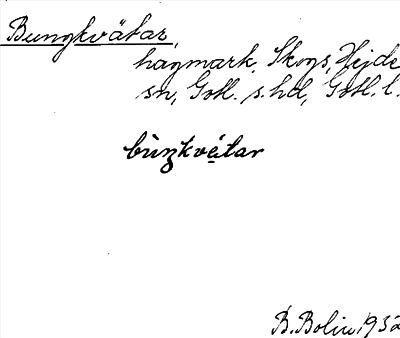 Bungkvätar,
hagmark, Skogs, Hejde
sn, Gotl. s. hd, Gotl. l.
bùŋkvetar
B. Bolin 1932